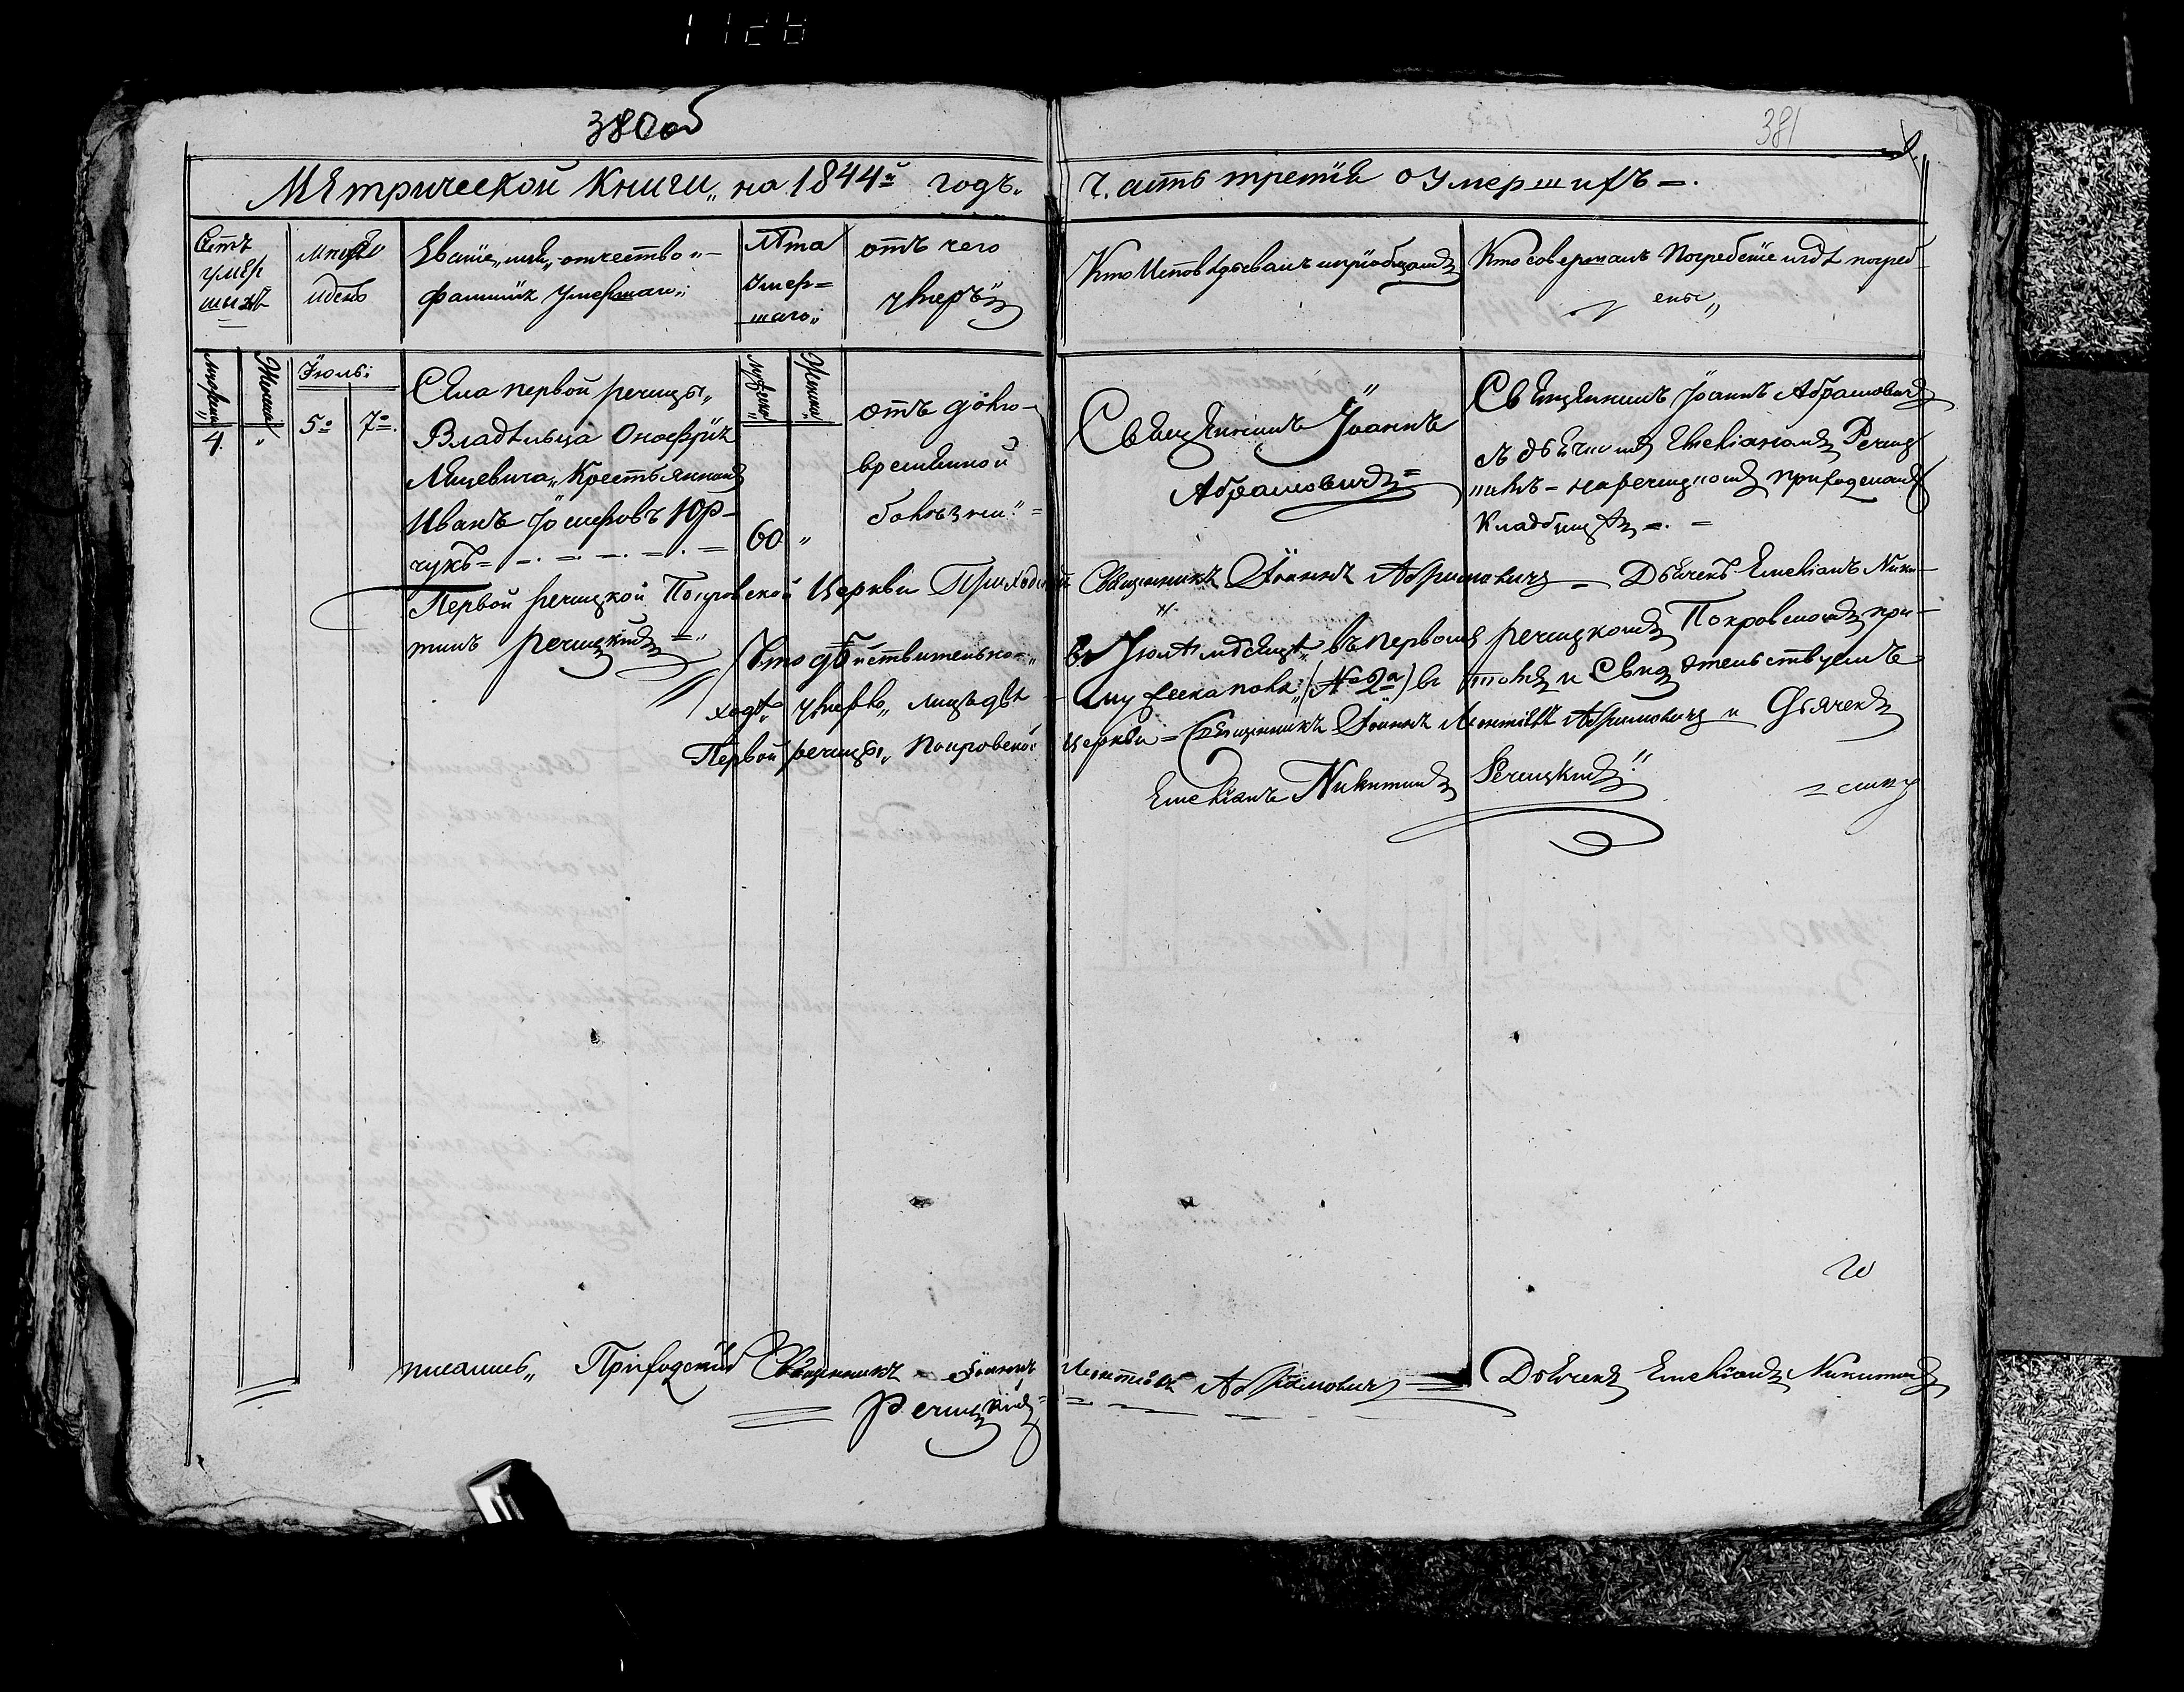 380 об
381
Метрической Книги„ на 1844й годъ.
Часть третія о Умершихъ =.
Счетъ умершихъ
Мѣсяцъ и день
Званіе„ имя„ отчество„ фамилія Умершаго„
Лѣта Умершаго„
отъ чего умеръ
Кто Исповѣдывалъ и пріобщалъ
Кто совершалъ Погребеніе и гдѣ погребены„
Іюль:
4. „ 5о 7о.
Села первой речицы„
Владѣльца Онофрія
Крестьянинъ
Иванъ Іосифовъ Юр-
чукъ =
60 „
отъ долго-
временной
болѣзни =
Священникъ Іоаннъ
Абрамовичъ =
Священникъ Іоаннъ Абрамовичъ
съ дьячкомъ Емеліаномъ Речиц
кимъ = на речицкомъ приходскомъ
Кладбищѣ =. =
Первой речицкой Покровской Церкви Приходскій Священникъ Іоаннъ Абрамовичъ = Дьячекъ Емеліанъ Ники-
тинъ речицкій =„
Что дѣйствительно = въ Іюлѣ мѣсяцѣ„ въ первомъ речицкомъ Покровскомъ при-
ходѣ„ умерло„ лицъ двѣ мужеска пола„ (№ 2а) въ томъ и Свидѣтельствуемъ =
Первой речицы„ Покровской Церкви = Священникъ Іоаннъ Абрамовичъ и Дьячекъ
Емеліанъ Никитинъ Речицкій
= сину
Приходскій Священникъ = Іоаннъ Абрамовичъ = Дьячекъ Емеліанъ Никитинъ
Речицкій =